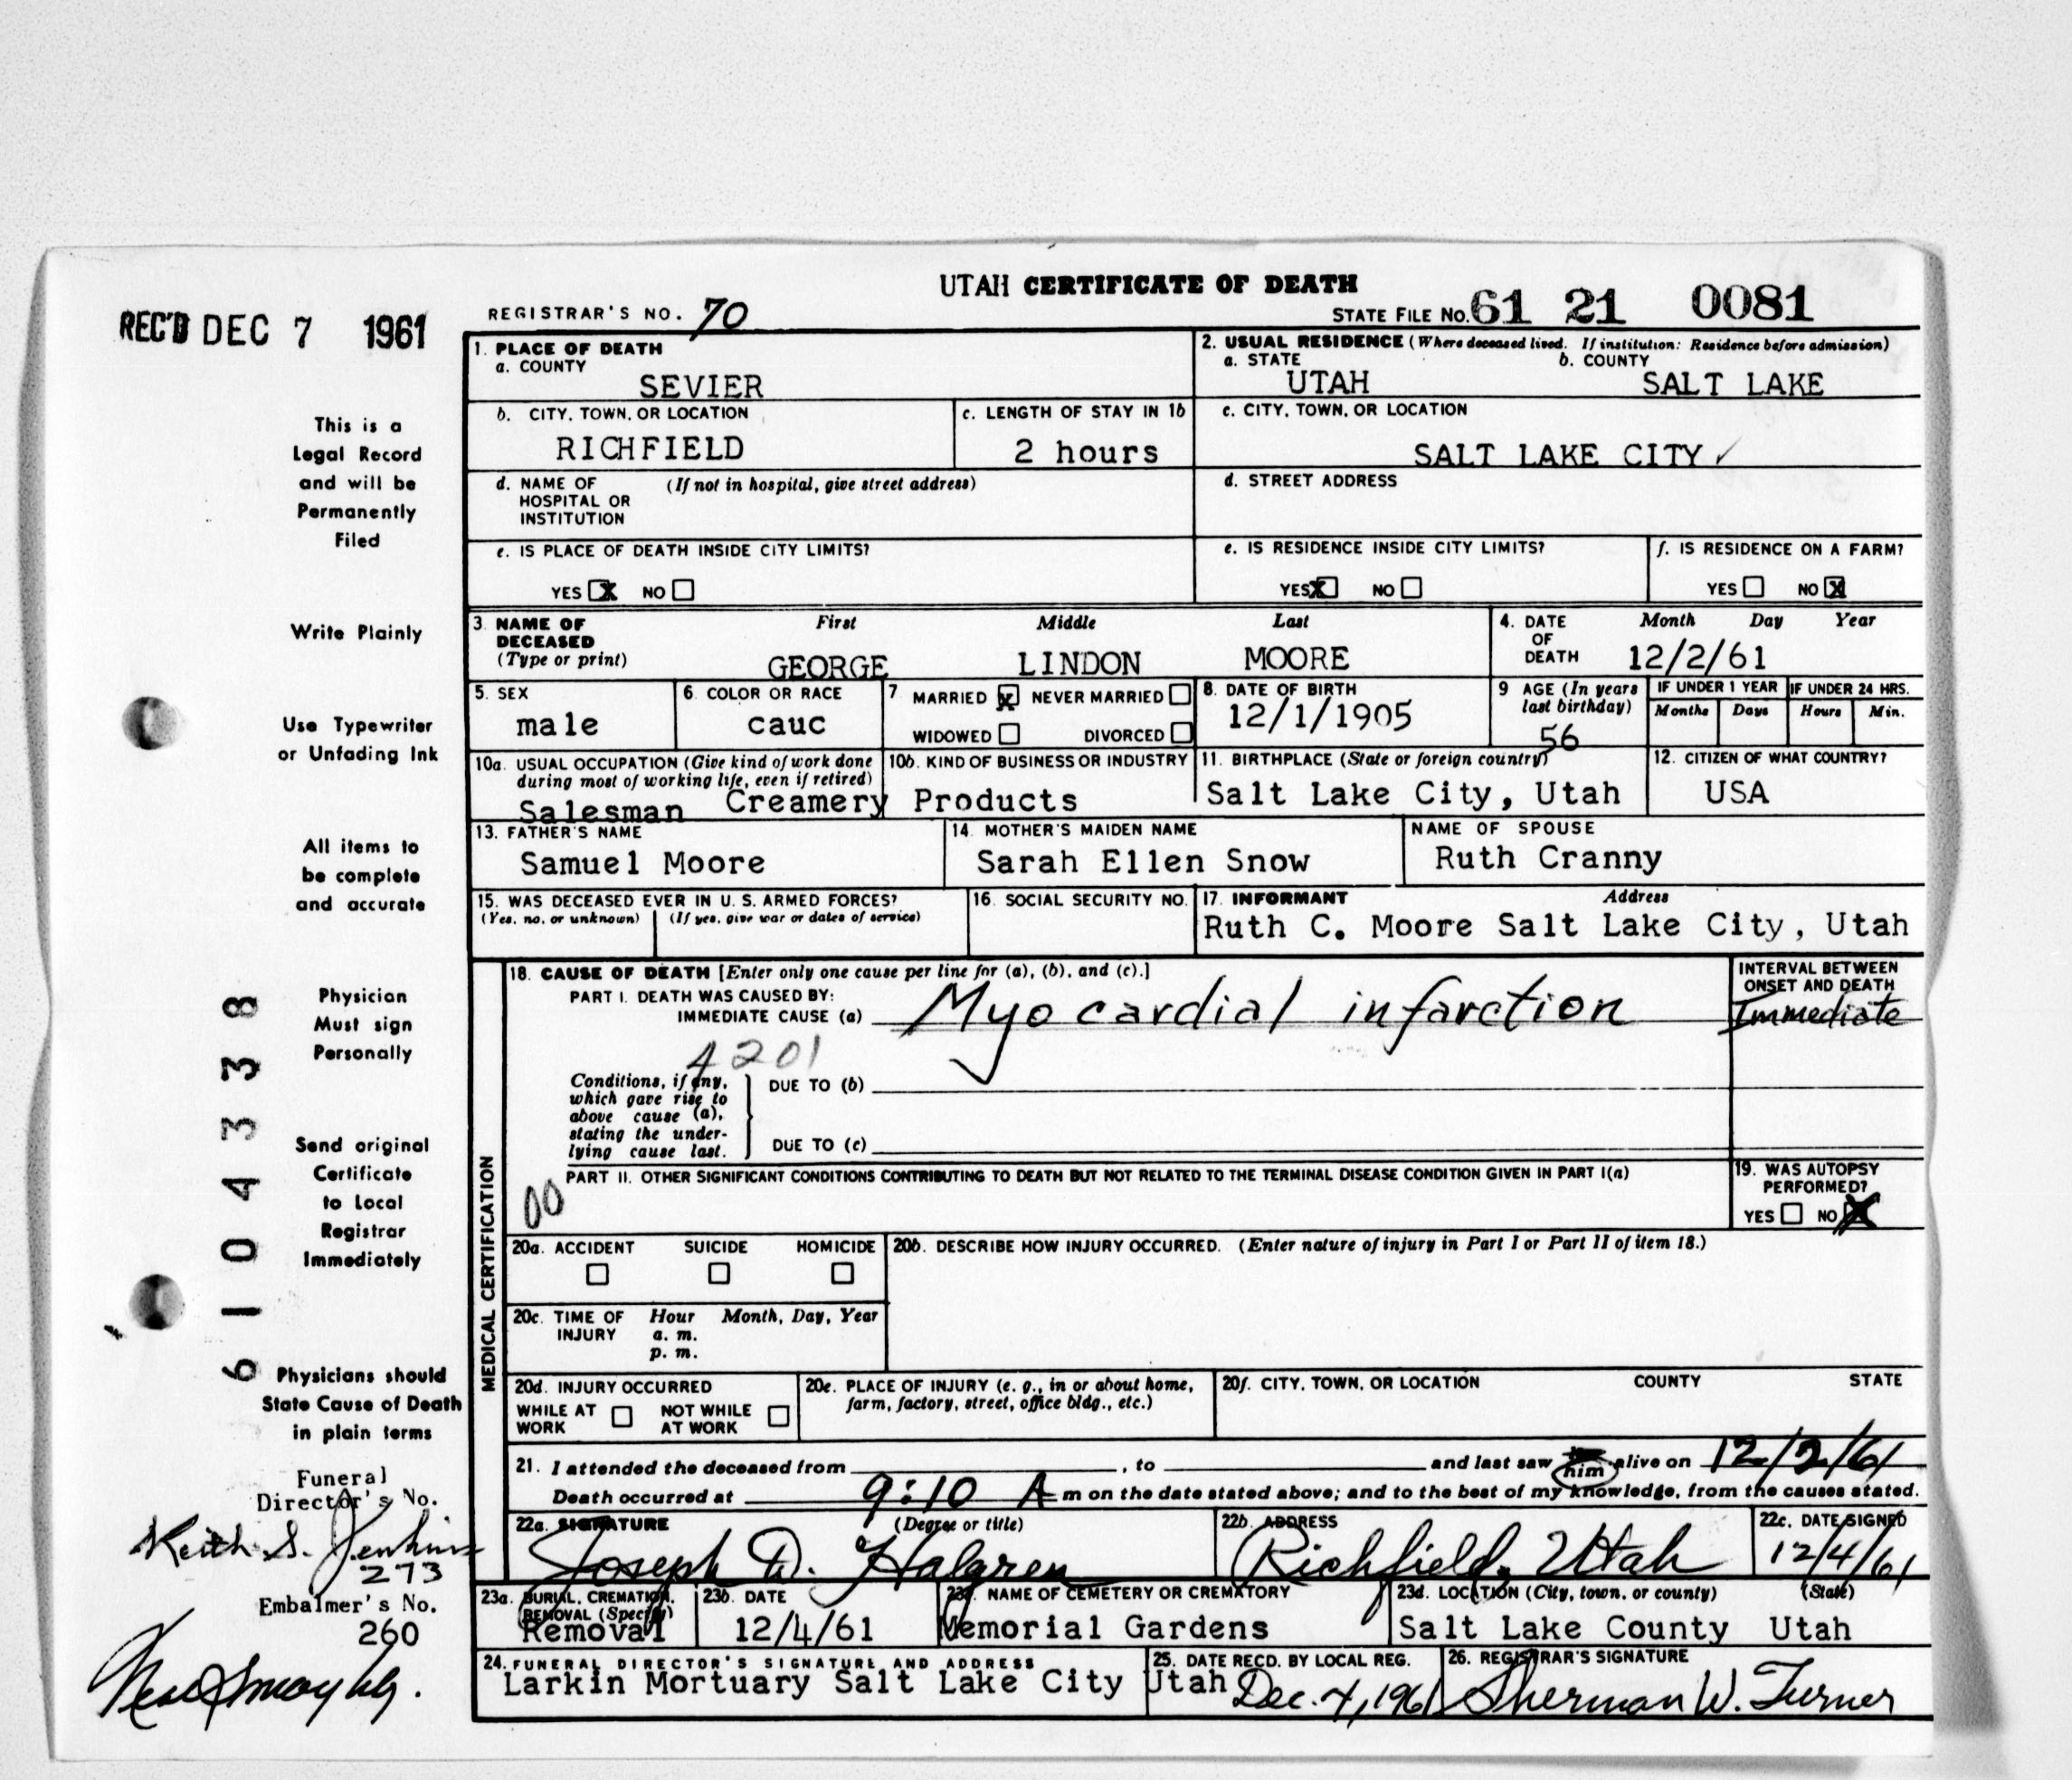 UTAH CERTIFICATE OF DEATH
REC'D DEC 7 1961
REGISTRAR'S NO. 70
STATE FILE No. 61 21 0081
This is a
Legal Record
and will be
Permanently
Filed
Write Plainly
Use Typewriter
or Unfading Ink
All items to
be complete
and accurate
Physician
Must sign
Personally
Send original
Certificate
to Local
Registrar
Immediately
Physicians should
State Cause of Death
in plain terms
61 04338
Funeral
Director's No.
Keith S. Jenkins
273
Embalmer's No.
260
1. PLACE OF DEATH
a. COUNTY
SEVIER
2. USUAL RESIDENCE (Where deceased lived. If institution: Residence before admission)
a. STATE b. COUNTY
UTAH SALT LAKE
b. CITY, TOWN, OR LOCATION
RICHFIELD
c. LENGTH OF STAY IN 1b
2 hours
c. CITY, TOWN, OR LOCATION
SALT LAKE CITY ✓
d. NAME OF (If not in hospital, give street address)
HOSPITAL OR
INSTITUTION
d. STREET ADDRESS
e. IS PLACE OF DEATH INSIDE CITY LIMITS?
YES X NO
e. IS RESIDENCE INSIDE CITY LIMITS?
YES X NO
f. IS RESIDENCE ON A FARM?
YES NO X
3. NAME OF First Middle Last
DECEASED
(Type or print) GEORGE LINDON MOORE
4. DATE Month Day Year
OF
DEATH 12/2/61
5. SEX
male
6. COLOR OR RACE
cauc
7 MARRIED X NEVER MARRIED
WIDOWED DIVORCED
8. DATE OF BIRTH
12/1/1905
9 AGE (In years
last birthday)
56
IF UNDER 1 YEAR IF UNDER 24 HRS.
Months Days Hours Min.
10a. USUAL OCCUPATION (Give kind of work done
during most of working life, even if retired)
10b. KIND OF BUSINESS OR INDUSTRY
Salesman Creamery Products
11. BIRTHPLACE (State or foreign country)
Salt Lake City, Utah
12. CITIZEN OF WHAT COUNTRY?
USA
13. FATHER'S NAME
Samuel Moore
14. MOTHER'S MAIDEN NAME
Sarah Ellen Snow
NAME OF SPOUSE
Ruth Cranny
15. WAS DECEASED EVER IN U. S. ARMED FORCES?
(Yes, no, or unknown) (If yes, give war or dates of service)
16. SOCIAL SECURITY NO.
17. INFORMANT Address
Ruth C. Moore Salt Lake City, Utah
MEDICAL CERTIFICATION
18. CAUSE OF DEATH [Enter only one cause per line for (a), (b), and (c).]
PART I. DEATH WAS CAUSED BY:
IMMEDIATE CAUSE (a) Myocardial infarction
INTERVAL BETWEEN
ONSET AND DEATH
Immediate
4201
Conditions, if any,
which gave rise to
above cause (a),
stating the under-
lying cause last.
DUE TO (b)
DUE TO (c)
PART II. OTHER SIGNIFICANT CONDITIONS CONTRIBUTING TO DEATH BUT NOT RELATED TO THE TERMINAL DISEASE CONDITION GIVEN IN PART I(a)
00
19. WAS AUTOPSY
PERFORMED?
YES NO X
20a. ACCIDENT SUICIDE HOMICIDE
20b. DESCRIBE HOW INJURY OCCURRED. (Enter nature of injury in Part I or Part II of item 18.)
20c. TIME OF Hour Month, Day, Year
INJURY a. m.
p. m.
20d. INJURY OCCURRED
WHILE AT NOT WHILE
WORK AT WORK
20e. PLACE OF INJURY (e. g., in or about home,
farm, factory, street, office bldg., etc.)
20f. CITY, TOWN, OR LOCATION COUNTY STATE
21. I attended the deceased from , to and last saw him alive on 12/2/61
Death occurred at 9:10 A m on the date stated above; and to the best of my knowledge, from the causes stated.
22a. SIGNATURE (Degree or title)
Joseph D. Halgren
22b. ADDRESS
Richfield, Utah
22c. DATE SIGNED
12/4/61
23a. BURIAL, CREMATION,
REMOVAL (Specify)
Removal
23b. DATE
12/4/61
23c. NAME OF CEMETERY OR CREMATORY
Memorial Gardens
23d. LOCATION (City, town, or county) (State)
Salt Lake County Utah
24. FUNERAL DIRECTOR'S SIGNATURE AND ADDRESS
Larkin Mortuary Salt Lake City Utah
25. DATE RECD. BY LOCAL REG.
Dec. 4, 1961
26. REGISTRAR'S SIGNATURE
Sherman W. Turner